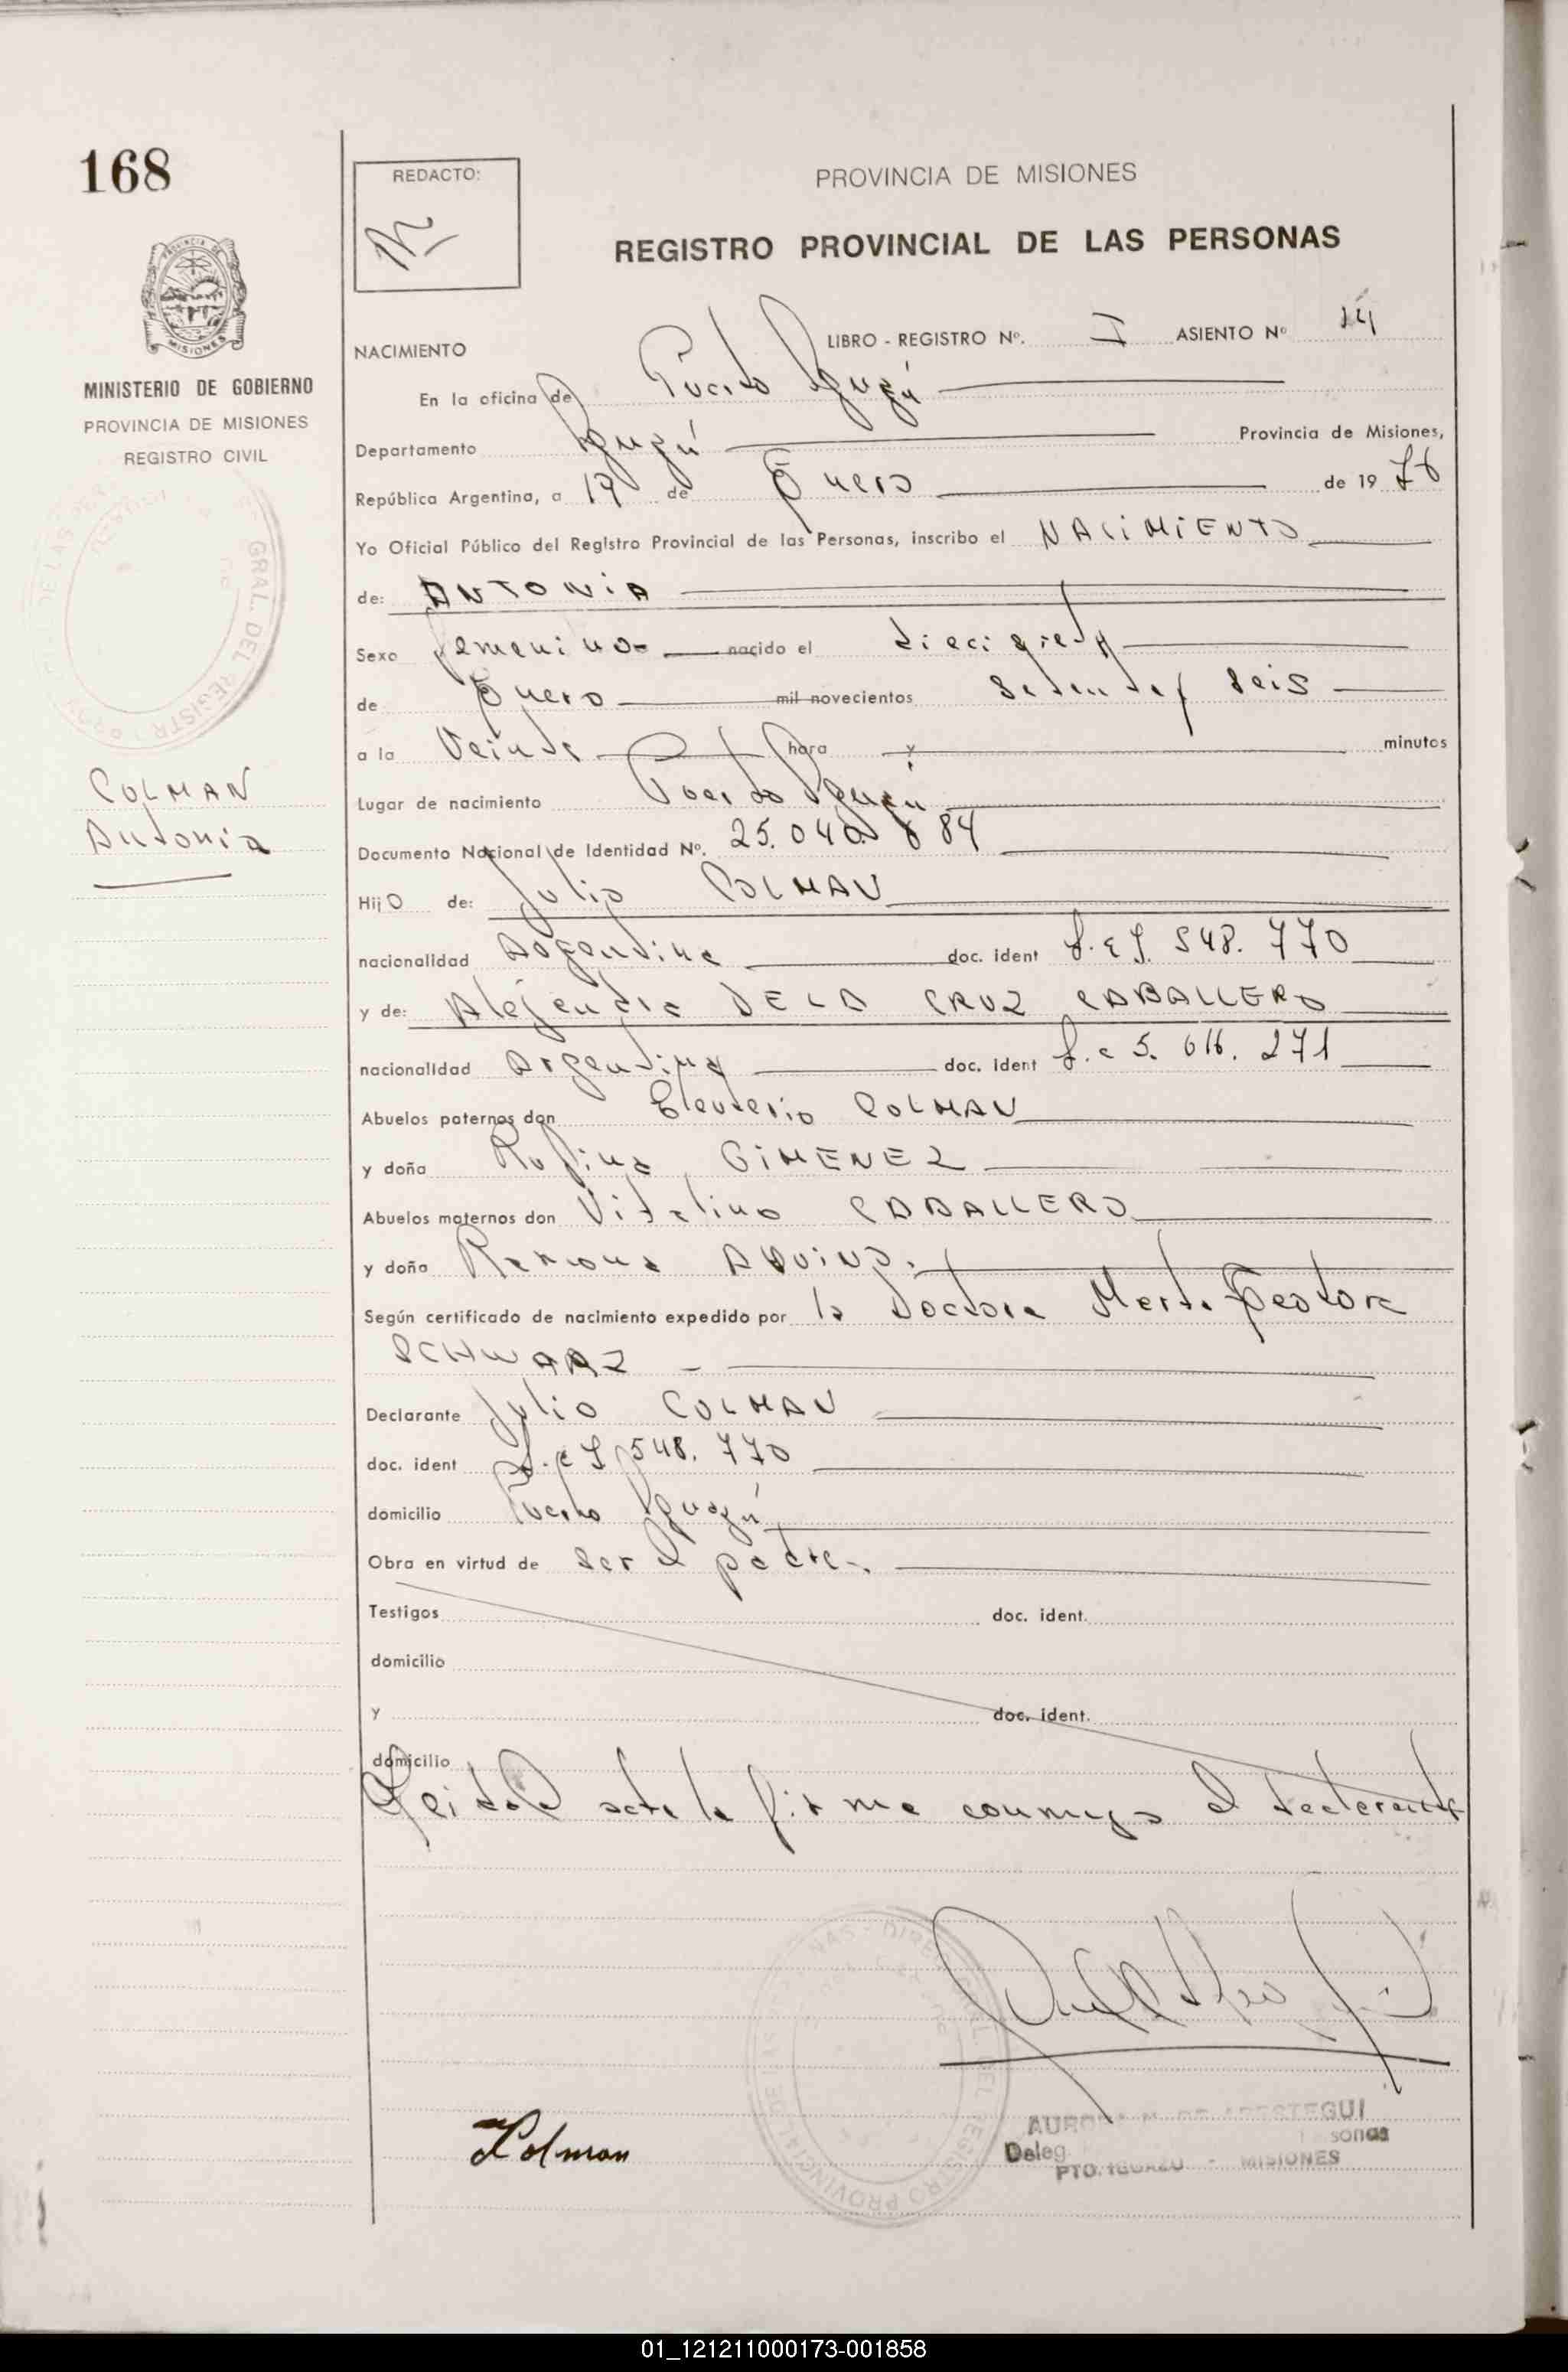 168
REDACTO:
PROVINCIA DE MISIONES
REGISTRO PROVINCIAL DE LAS PERSONAS
MISIONES
MINISTERIO DE GOBIERNO
PROVINCIA DE MISIONES
REGISTRO CIVIL
COLMAN
Antonia
NACIMIENTO LIBRO - REGISTRO Nº. I ASIENTO Nº 14
En la oficina de Puerto Iguazú
Departamento Iguazú Provincia de Misiones,
República Argentina, a 19 de Enero de 19 76
Yo Oficial Público del Registro Provincial de las Personas, inscribo el NACIMIENTO
de: ANTONIA
Sexo femenino nacido el diecisiete
de Enero mil novecientos setenta y seis
a la Veinte hora y minutos
Lugar de nacimiento Puerto Iguazú
Documento Nacional de Identidad Nº. 25.040.884
Hijo de: Julio COLMAN
nacionalidad Argentina doc. ident 548.770
y de: Alejandra DE LA CRUZ CABALLERO
nacionalidad Argentina doc. ident 5. 616. 271
Abuelos paternos don Eleuterio COLMAN
y doña Rufina GIMENEZ
Abuelos maternos don Vitalino CABALLERO
y doña Ramona AQUINO.
Según certificado de nacimiento expedido por la Doctora Marta Teodora
SCHWARZ -
Declarante Julio COLMAN
doc. ident 548.770
domicilio Puerto Iguazú
Obra en virtud de ser el padre-.
Testigos doc. ident.
domicilio
y doc. ident.
domicilio
Leida el acta la firma conmigo el declarante
Colman
Deleg sonas
PTO. IGUAZU - MISIONES
01_121211000173-001858